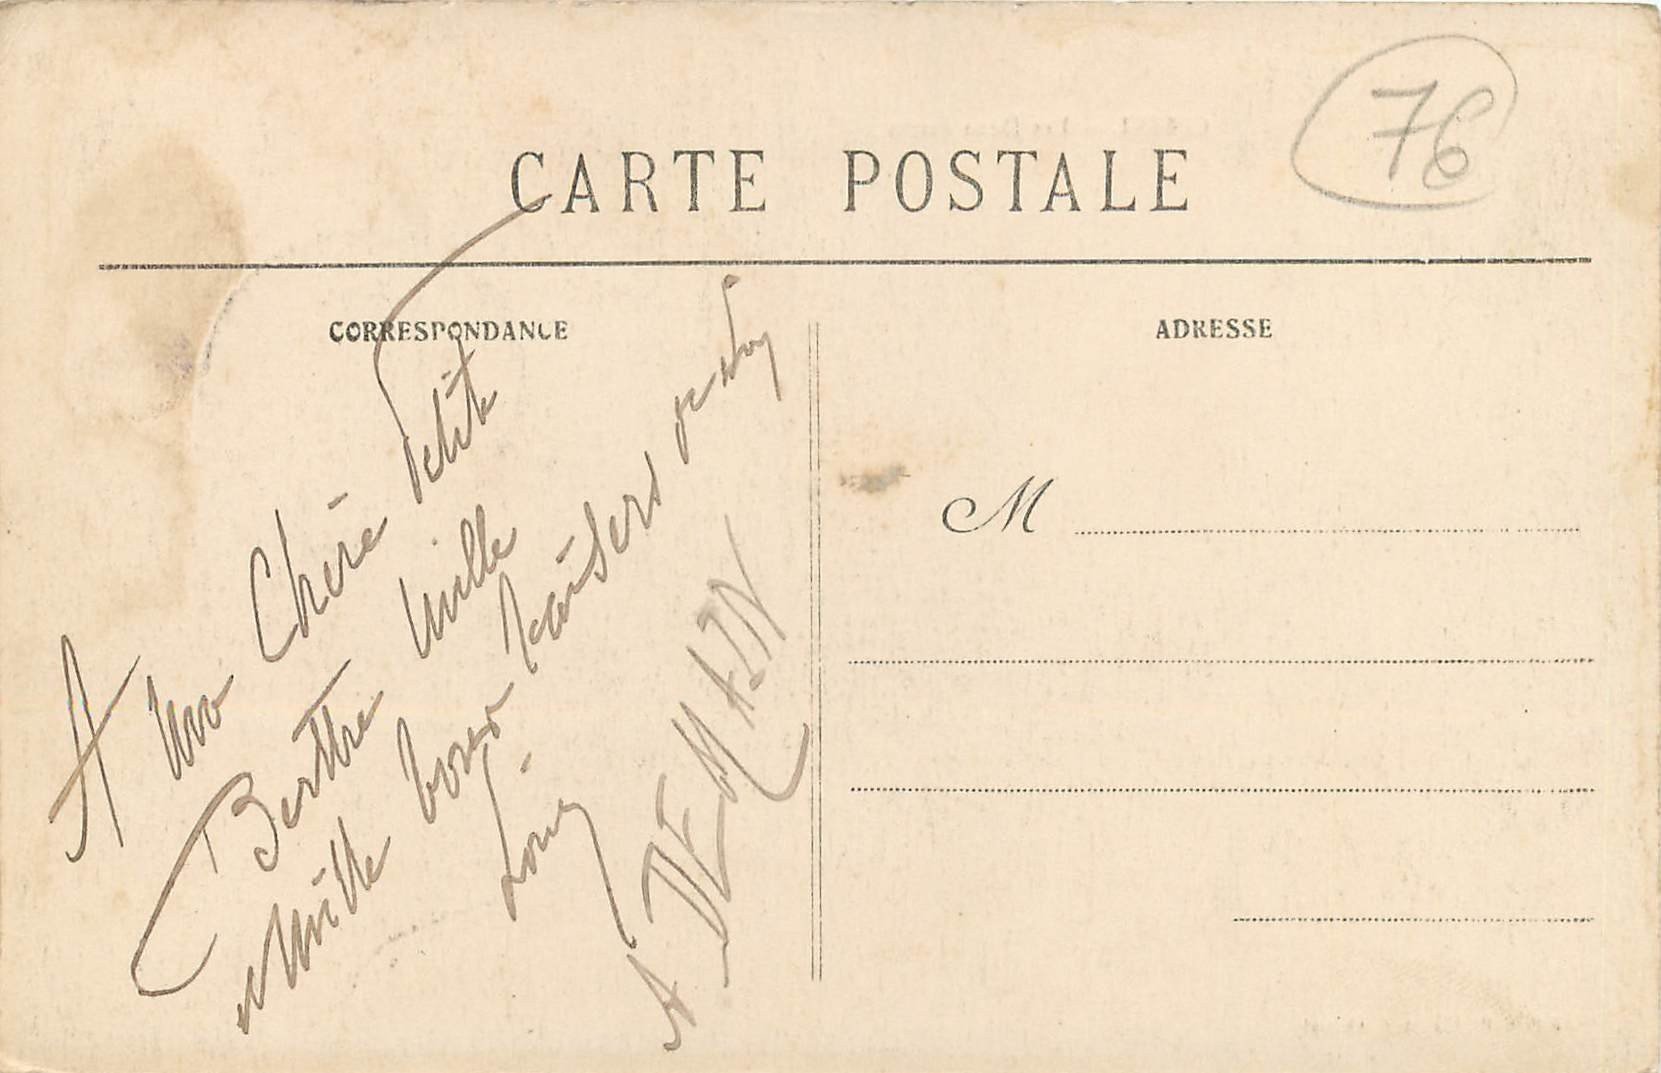 76
CARTE POSTALE
CORRESPONDANCE
ADRESSE
A ma Chère Petite
Berthe Mille
et Mille bons baisers de ton
A DEMAIN
M